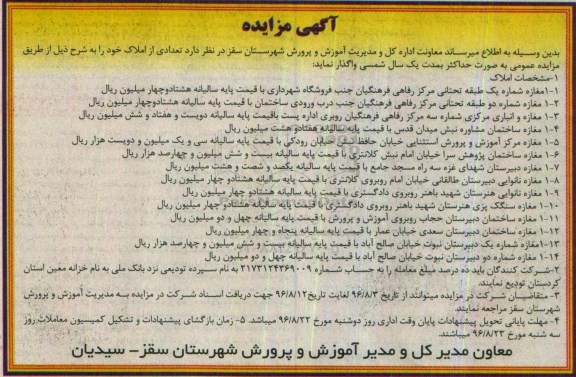 آگهی مزایده
بدین وسیله به اطلاع میرساند معاونت اداره کل و مدیریت آموزش و پرورش شهرستان سقز در نظر دارد تعدادی از املاک خود را به شرح ذیل از طریق
مزایده عمومی به صورت حداکثر بمدت یک سال شمسی واگذار نماید:
۱-مشخصات املاک
۱-۱مغازه شماره یک طبقه تحتانی مرکز رفاهی فرهنگیان جنب فروشگاه شهرداری با قیمت پایه سالیانه هشتادوچهار میلیون ریال
۲-۱ مغازه شماره دو طبقه تحتانی مرکز رفاهی فرهنگیان جنب درب ورودی ساختمان با قیمت پایه سالیانه هشتادوچهار میلیون ریال
۳-۱ مغازه و انباری مرکزی شماره سه مرکز رفاهی فرهنگیان روبری اداره پست باقیمت پایه سالیانه دویست و هفتاد و شش میلیون ریال
۴-۱ مغازه ساختمان مشاوره نبش میدان قدس با قیمت پایه سالیانه هفتادو هشت میلیون ریال
۵-۱ مغازه مرکز آموزش و پرورش استثنایی خیابان حافظ نبش خیابان رودکی با قیمت پایه سالیانه سی و یک میلیون و دویست هزار ریال
۶-۱ مغازه ساختمان پژوهش سرا خیابان امام نبش کلانتری با قیمت پایه سالیانه بیست و شش میلیون و چهارصد هزار ریال
۷-۱ مغازه دبیرستان شهدای غزه سه راه مسجد جامع با قیمت پایه سالیانه یکصد و شصت و هشت میلیون ریال
۸-۱ مغازه نانوایی دبیرستان طالقانی خیابان امام روبروی کلانتری با قیمت پایه سالیانه هشتادو چهار میلیون ریال
۹-۱ مغازه نانوایی هنرستان شهید باهنر روبروی دادگستری با قیمت پایه سالیانه هشتادو چهار میلیون ریال
۱۰-۱ مغازه سنگک پزی هنرستان شهید باهنر روبروی دادگستری با قیمت پایه سالیانه هشتادو چهار میلیون ریال
۱۱-۱ مغازه ساختمان دبیرستان حجاب روبروی آموزش و پرورش با قیمت پایه سالیانه چهل و دو میلیون ریال
۱۲-۱ مغازه ساختمان دبیرستان سعدی خیابان عمار با قیمت پایه سالیانه پنجاه و چهار میلیون ریال
۱۳-۱مغازه شماره یک دبیرستان نبوت خیابان صالح آباد با قیمت پایه سالیانه بیست و شش میلیون و چهارصد هزار ریال
۱۴-۱ مغازه شماره دو دبیرستان نبوت خیابان صالح آباد با قیمت پایه سالیانه چهل و دو میلیون ریال
۲-شرکت کنندگان باید ده درصد مبلغ معامله را به حساب شماره ۲۱۷۳۱۲۴۳۶۹۰۰۹ به نام سپرده تودیعی نزد بانک ملی به نام خزانه معین استان
کردستان تودیع نمایند.
۳- متقاضیان شرکت در مزایده میتوانند از تاریخ ۹۶/۸/۳ لغایت تاریخ۹۶/۸/۱۲ جهت دریافت اسناد شرکت در مزایده به مدیریت آموزش و پرورش
شهرستان سقز مراجعه نمایند.
۴- مهلت پایانی تحویل پیشنهادات پایان وقت اداری روز دوشنبه مورخ ۹۶/۸/۲۲ میباشد. ۵- زمان بازگشای پیشنهادات و تشکیل کمیسیون معاملات روز
سه شنبه مورخ ۹۶/۸/۲۳ میباشد.
معاون مدیر کل و مدیر آموزش و پرورش شهرستان سقز- سیدیان